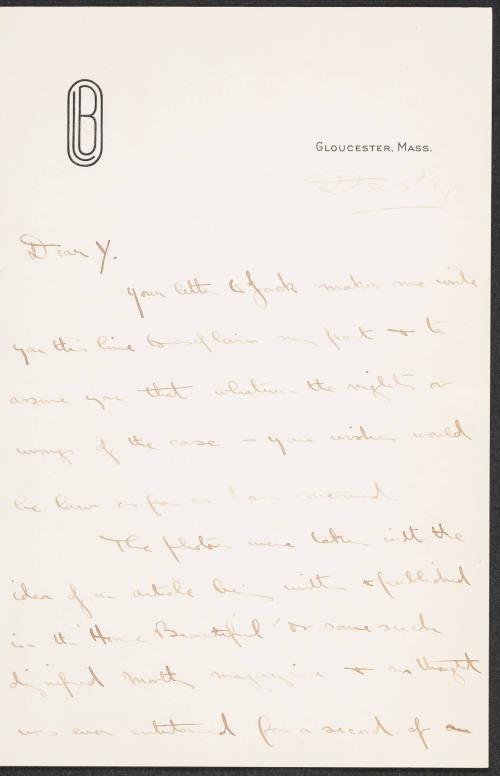 GLOUCESTER, MASS.
Dear Y.
your letter to Jack makes me write
you this line to explain my part & to
assure you that whatever the rights or
wrongs of the case – your wishes would
be law as far as I am concerned.
The photos were taken with the
idea of an article being written & published
in the "Home Beautiful" or some such
dignified monthly magazine & no thought
was ever entertained for a second of an